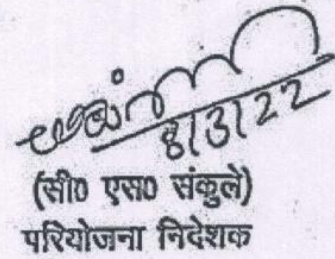 8/3/22
(सी0 एस0 संकुले)
परियोजना निदेशक